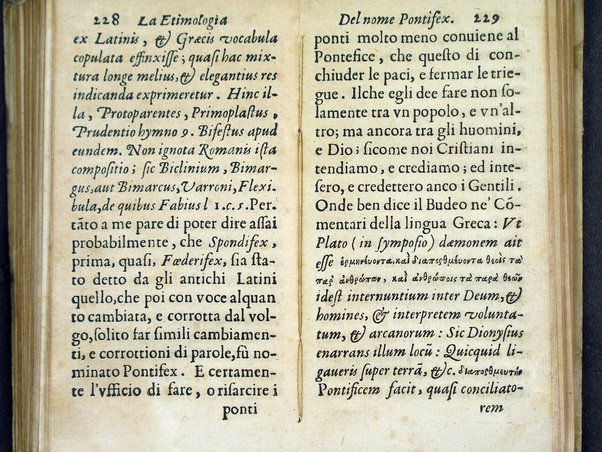 228 La Etimologia
ex Latinis, & Græcis vocabula
copulata effinxiſſe; quaſi hac mix-
tura longe melius, & elegantius res
indicanda exprimeretur. Hinc il-
la, Protoparentes, Primoplaſtus,
Prudentio hymno 9. Bifeſtus apud
eundem. Non ignota Romanis iſta
compoſitio; ſic Biclinium, Bimar-
gus, aut Bimarcus, Varroni, Flexi-
bula, de quibus Fabius l 1. c. 5. Per-
tãto a me pare di poter dire aſſai
probabilmente, che Spondifex,
prima, quaſi, Fœderifex, ſia ſta-
to detto da gli antichi Latini
quello, che poi con voce alquan
to cambiata, e corrotta dal vol-
go, ſolito far ſimili cambiamen-
ti, e corrottioni di parole, fù no-
minato Pontifex. E certamen-
te l'vfficio di fare, o riſarcire i
ponti
Del nome Pontifex. 229
ponti molto meno conuiene al
Pontefice, che queſto di con-
chiuder le paci, e fermar le trie-
gue. Ilche egli dee fare non ſo-
lamente tra vn popolo, e vn'al-
tro; ma ancora tra gli huomini,
e Dio; ſicome noi Criſtiani in-
tendiamo, e crediamo; ed inte-
ſero, e credettero anco i Gentili.
Onde ben dice il Budeo ne' Cõ-
mentari della lingua Greca: Vt
Plato (in ſympoſio) dæmonem ait
eſſe ἑρμηνεύοντα, καὶ διαπορθμεύοντα θεοῖς τὰ
παρ' ἀνθρώπων, καὶ ἀνθρώποις τὰ παρὰ θεῶν
ideſt internuntium inter Deum, &
homines, & interpretem volunta-
tum, & arcanorum: Sic Dionyſius
enarrans illum locũ: Quicquid li-
gaueris ſuper terrã, &c. διαπορθμευτὴν
Pontificem facit, quaſi conciliato-
rem